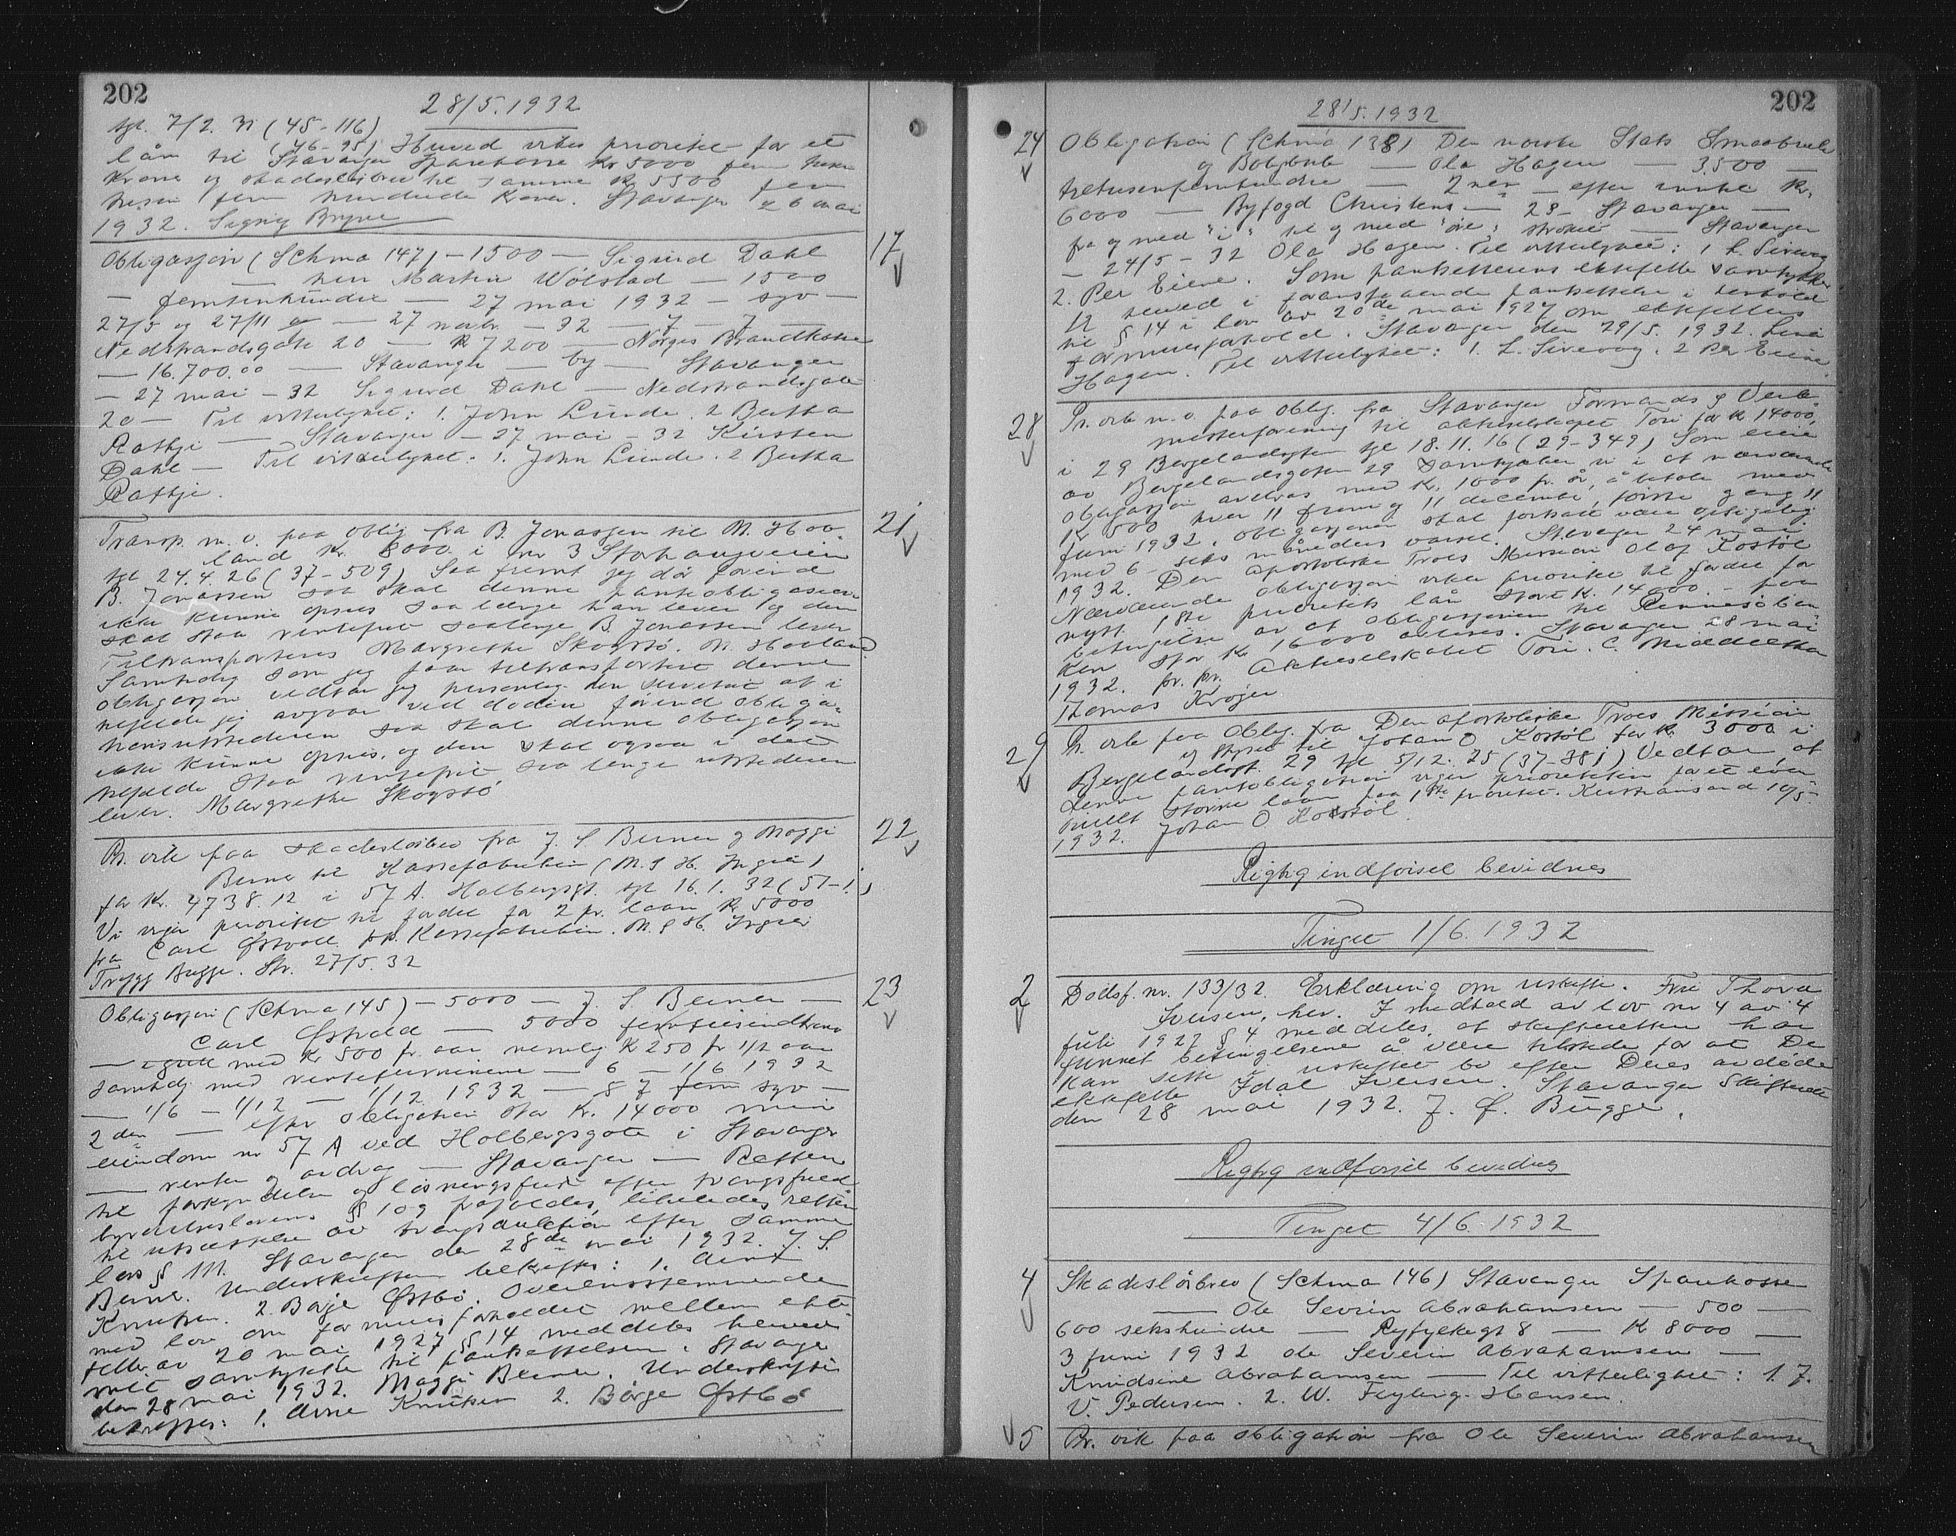 202
28/5.1932
tgl. 7/2. 31 (45-116)
(46-95) Herved vikes prioritet for et
lån til Stavanger Sparekasse Kr 5000 fem tusen
Krone og skadesløsbrev til samme Kr 5500 fem
tusen fem hundrede Kroner. Stavanger 26 mai
1932. Sigvig Bryne
17
Obligasjon (Schma 147) - 1500 - Sigurd Dahl
— herr Martin Wølstad — 1500
— femtenhundre — 27 mai 1932 — syv —
27/5 og 27/11 — 27 novbr. — 32 — 7 — 7 —
Nedstrandsgate 20 — Kr 7200 — Norges Brandkasse
— 16.700.00 — Stavanger — by — Stavanger
— 27 mai — 32 Sigurd Dahl — Nedstrandsgate
20 — Til vitterlighet: 1. John Lunde. 2 Bertha
Rathje — Stavanger — 27 mai — 32 Kirsten
Dahl — Til vitterlighet. 1. John Lunde. 2 Bertha
Rathje.
21
Transp. m. v. paa oblig fra B. Jonassen til M. Hov-
land Kr. 8000 i nr 3 Storhaugveien
tgl 24.4.26 (37-509) Saa fremt jeg dør forinde
B. Jonassen saa skal denne pantobligasion
ikke kunne opsies saa længe han lever og den
skal staa rentefrit saalenge B. Jonassen lever
Tiltransporteres Margrethe Skogstø. M. Hovland.
Samtidig som jeg faar tiltransportert denne
obligasjon vedtar jeg personlig den at i
tilfelde jeg avgaar ved døden forend obliga-
sionsutstederen saa skal denne obligasjon
ikke kunne opsies, og den skal ogsaa i det
tilfelde staa rentefrit saa lenge utstederen
lever. Margrethe Skogstø
22
Pr. vik paa skadesløsbrev fra J. S Berner og Maggi
Berner til Kassefabriken (M. S H. Ingier)
for Kr. 4738.12 i 57 A. Holbergsgt. tgl 16.1.32 (51-1.)
Vi viger prioritet til fordel for 2 pr. laan Kr 5000
fra Carl Østvold. pp. Kassefabriken. M. S H. Ingier
Trygg Bugge. Str. 27/5.32
23
Obligasjon (Schma 145) — 5000 — J. S Berner —
Carl Østvold — 5000 femtusindkroner
— med Kr 500 pr. aar nemlig Kr 250 pr 1/2 aar
samtidig med renteterminene — 6 — 1/6 1932
— 1/6 — 1/12 — 1/12 1932 — 5 7 fem syv —
2 den — efter obligation stor Kr. 14000 min
eiendom nr 57 A ved Holbergsgate i Stavanger
— renter og avdrag — Stavanger — Retten
til forkyndelse og løsningsfrist efter tvangsfuld-
byrdelseslovens § 109 frafaldes, likeledes retten
til utsættelse av tvangsauktion efter samme
lovs § 111. Stavanger den 28de mai 1932. J. S.
Berner. Underskriften bekræftes: 1. Arne
Knutsen. 2. Børge Østbø. Overensstemmende
med lov om formuesforholdet mellem ekte-
feller av 20 mai 1927 § 14 meddeles herved
mit samtykke til pantsettelsen. Stavanger
den 28 mai 1932. Maggi Berner. Underskriften
bekræftes: 1. Arne Knutsen 2. Børge Østbø
202
28/5.1932
24
Obligation (Schma 138) Den norske Stats Smaabruk
og Boligbank — Ola Hagen — 3500 —
tretusenfemhundre — 2nen — efter Kr.
6000 — Byfogd Christens — 28 — Stavanger —
fra og med "i" til og med "øre" strøket — Stavanger
— 24/5 — 32 Ola Hagen. Til vitterlighet: 1 L. Sirevåg
2. Per Eiene. Som pantsetterens ektefelle samtykker
herved i foranstaaende pantsettelse i henhold
til § 14 i lov av 20de mai 1927 om ektefellers
formuesforhold. Stavanger den 29/5. 1932.
Hagen. Til vitterlighet: 1. L. Sirevaag. 2 Per Eiene.
28
Pr. vik m. v. paa oblig. fra Stavanger Formands og Verk-
mesterforening til aktieselskapet Tori for Kr 14000.
i 29 Bergelandsgten tgl 18.11.16 (29-349) Som eier
av Bergelandsgaten 29 samtykker vi i at nærværende
obligasjon avdras med Kr. 1000 pr. år, å betale med
Kr 500 hver 11 juni og 11 december, første gang 11
juni 1932. obligasjonen skal forhatt være opsigelig
med 6 — seks måneders varsel. Stavanger 24 mai
1932. Den apostoliske Troes Mission Olaf Kostøl
Nærværende obligasjon viker prioritet til fordel for
nytt 1ste prioritets lån stort Kr. 14000. — paa
betingelse av at obligasjonen til Rennesøban-
ken stor Kr 16000 avlieses. Stavanger 28 mai
1932. pr. pr. Aktieselskabet Tori. C. Middelthon
Thomas Krøjer
29
Pr. vik paa oblig. fra Den apostoliske Troes Mission
og styret til Johan O Kostøl for Kr. 3000 i
Bergelandsgt. 29 tgl 5/12. 25 (37-381) Vedtar at
denne pantobligation viger prioriteten for et even-
tuelt større laan paa 1ste prioritet. Kristiansand 10/5-
1932. Johan O Kostøl.
Rigtig indførsel bevidnes
Tinget 1/6. 1932
2
Dødsf. nr. 133/32. Erklæring om uskifte. Fru Thora
Iversen, her. I medhold av lov nr 4 av 4
juli 1927 § 4 meddeles, at skifteretten har
funnet betingelsene å være tilstede for at De
kan sitte i uskiftet bo efter Deres avdøde
ektefelle Idal Iversen. Stavanger Skifterett
den 28 mai 1932. J. F. Bugge.
Rigtig indførsel bevidnes
Tinget 4/6. 1932
4
Skadesløsbrev (Schma 146) Stavanger Sparekasse
— Ole Severin Abrahamsen — 500 —
600 sekshundre — Ryfylkegt 8 — Kr 8000 —
3 juni 1932 Ole Severin Abrahamsen —
Knudsine Abrahamsen — Til vitterlighet: 1. J.
V. Pedersen. 2. W. Flyberg-Hansen.
5
Pr. vik paa obligation fra Ole Severin Abrahamsen